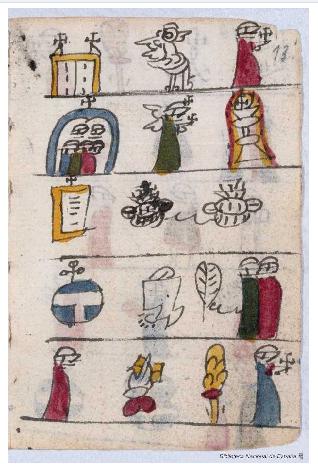 13
Biblioteca Nacional de España